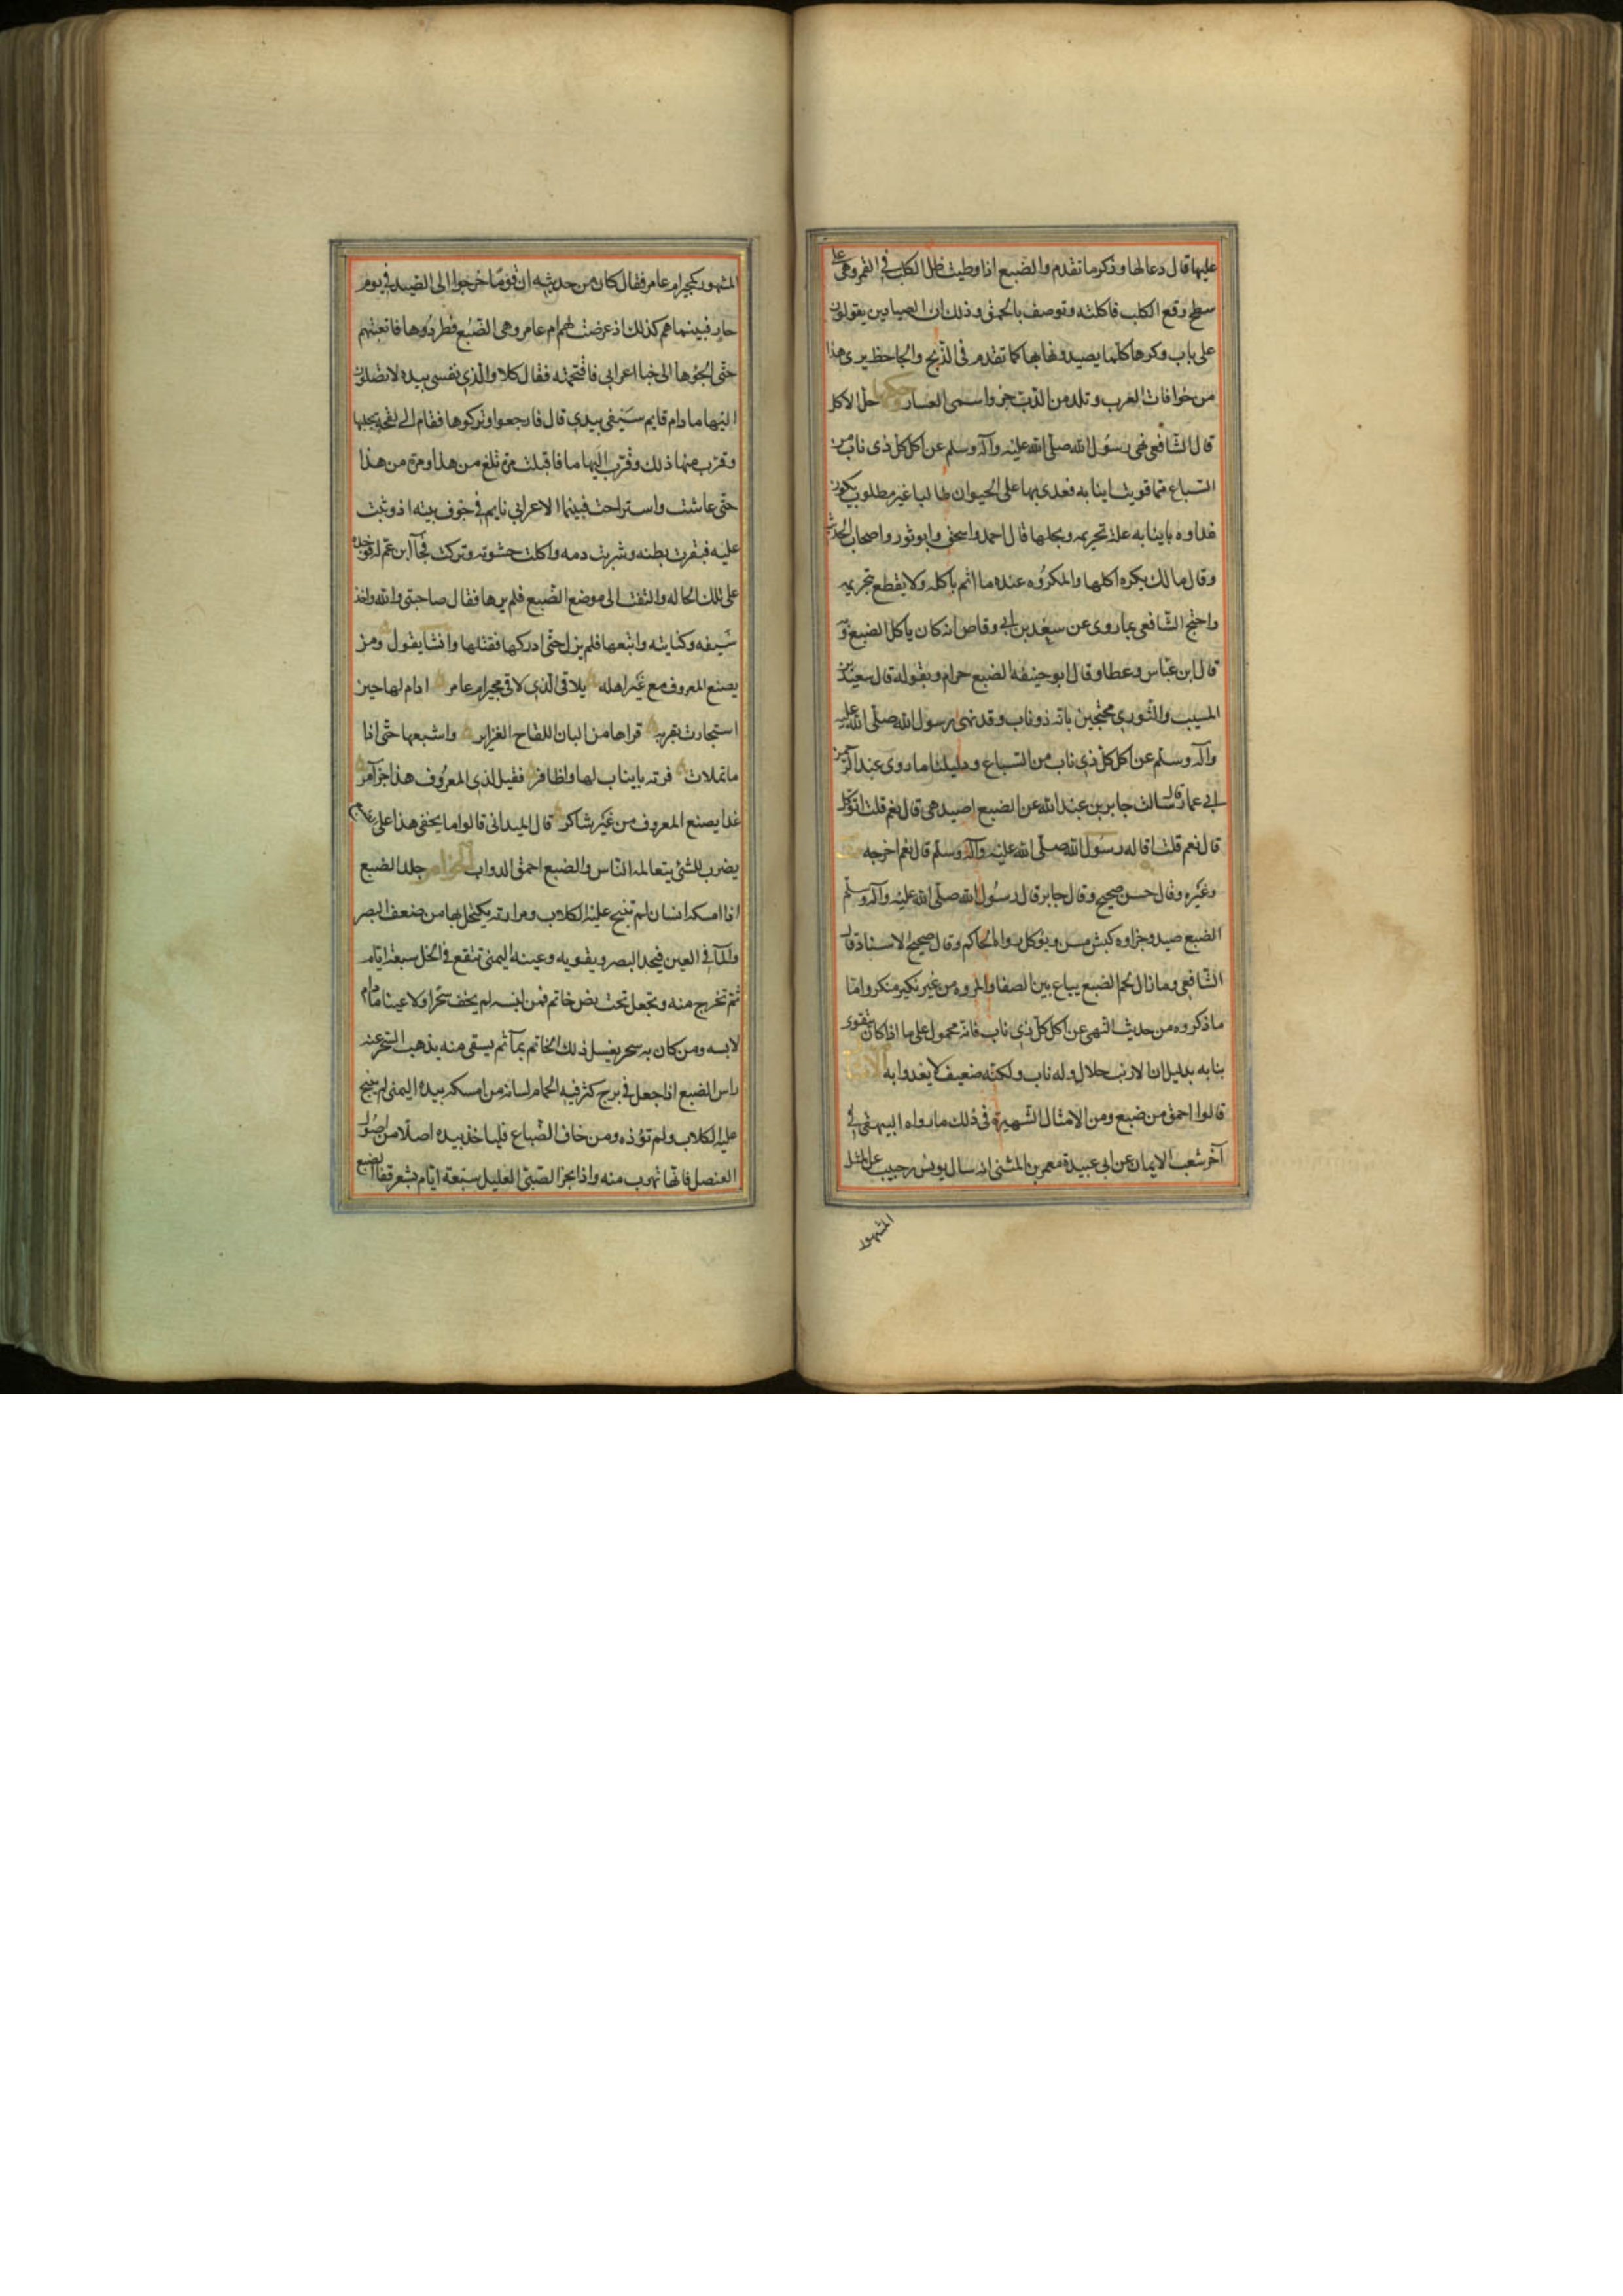 عليها قال دعا لها وذكر ما تقدم والضبع اذا وطيت ظل الكلب في القمر وهي على
سطح وقع الكلب فاكلته وتوصف بالحمق وذلك ان الصيادين يقولون
على باب وكرها كلما يصيدونها بها كما تقدم في الذيخ والجاحظ يرى هذا
من خرافات العرب وتلد من الذئب جروا سمى العسار حكمها حل الاكل
قال الشافعي نهى رسول الله صلى الله عليه وآله وسلم عن اكل كل ذي ناب من
السباع فما قويت انيابه فعدى بها على الحيوان طالبا غير مطلوب يكون
عداوه بانيابه علة تحريمه وبحلها قال احمد واسحق وابو ثور واصحاب الحديث
وقال مالك يكره اكلها والمكروه عنده ما اثم باكله ولا يقطع بتحريمه
واحتج الشافعي بما روى عن سعد بن ابي وقاص انه كان ياكل الضبع وبه
قال ابن عباس وعطا وقال ابو حنيفه الضبع حرام وبقوله قال سعيد بن
المسيب والثوري محتجين بانه ذو ناب وقد نهى رسول الله صلى الله عليه
وآله وسلم عن اكل كل ذي ناب من السباع ودليلنا ما روى عبد الرحمن
بن ابي عمار قال سالت جابر بن عبد الله عن الضبع اصيد هي قال نعم قلت اتوكل
قال نعم قلت اقاله رسول الله صلى الله عليه وآله وسلم قال نعم اخرجه
وغيره وقال حسن صحيح وقال جابر قال رسول الله صلى الله عليه وآله وسلم
الضبع صيد وجزاوه كبش مسن ويؤكل رواه الحاكم وقال صحيح الاسناد قال
الشافعي وما زال لحم الضبع يباع بين الصفا والمروه من غير نكير منكر واما
ما ذكروه من حديث النهى عن اكل كل ذي ناب فانه محمول على ما اذا كان يتقوى
بنابه بدليل ان الارنب حلال وله ناب ولكنه ضعيف لا يعدوا به الامثال
قالوا احمق من ضبع ومن الامثال الشهيرة في ذلك ما رواه البيهقي في
آخر شعب الايمان عن ابي عبيدة معمر بن المثنى انه سال يونس بن حبيب عن المثل
المشهور
المشهور كمجير ام عامر فقال كان من حديثه ان قوما خرجوا الى الصيد في يوم
حار فبينما هم كذلك اذ عرضت لهم ام عامر وهي الضبع فطردوها فاتعبتهم
حتى الجؤها الى خبا اعرابي فاقتحمته فقال كلا والذي نفسي بيده لا تصلون
اليها ما دام قايم سيفي بيدي قال فارجعوا وتركوها فقام الى لقحة يحلبها
وقرب منها ذلك وقرب اليها ما فاقبلت مرة تلغ من هذا ومرة من هذا
حتى عاشت واستراحت فبينما الاعرابي نايم في جوف بيته اذ وثبت
عليه فبقرت بطنه وشربت دمه واكلت حشوته وتركت فجآ ابن عم له فوجده
على تلك الحاله والتفت الى موضع الضبع فلم يرها فقال صاحبتي والله واخذ
سيفه وكنانته واتبعها فلم يزل حتى ادركها فقتلها وانشا يقول ومن
يصنع المعروف مع غير اهله يلاقى الذي لاقى مجير ام عامر ادام لها حين
استجارت بقربه قراها من البان اللقاح الغزاير واشبعها حتى اذا
ما تملات فرته بانياب لها واظافر فقيل لذي المعروف هذا جزآ من
غدا يصنع المعروف من غير شاكر قال الميداني قالوا ما يخفى هذا على
يضرب للشئ يتعالمه الناس والضبع احمق الدواب الخواص جلد الضبع
اذا امسكه انسان لم تنبح عليه الكلاب ومرارته يكتحل بها من ضعف البصر
والمآ في العين فيحد البصر ويقويه وعينه اليمنى تنقع في الخل سبعة ايام
ثم تخرج منه وتجعل تحت فص خاتم فمن لبسه لم يخف سحرا ولا عينا ما دام
لابسه ومن كان به سحر يغسل ذلك الخاتم بمآ ثم يسقى منه يذهب السحر عنه
راس الضبع اذا جعل في برج كثر فيه الحمام لسانه من امسكه بيده اليمنى لم ينبح
عليه الكلاب ولم تؤذه ومن خاف الضباع فلياخذ بيده اصلا من اصول
العنصل فانها تهرب منه واذا بخر الصبى العليل سبعة ايام بشعر قفا الضبع